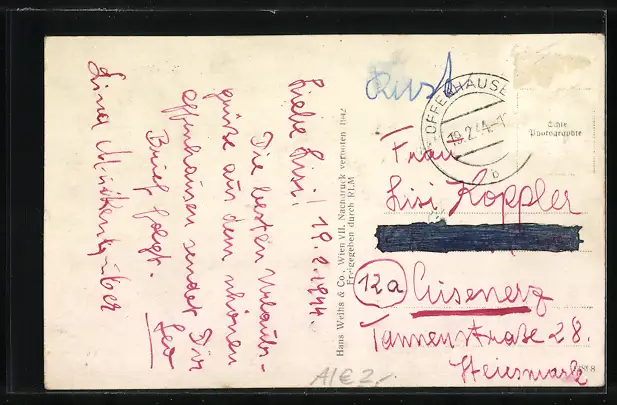 Liebe Lisi! 19.2.1944.
Die besten Urlaubs-
grüße aus dem schönen
offenhausen sendet Dir
Brief folgt. Leo
Hans Weihs & Co., Wien VII, Nachdruck verboten 1942
Freigegeben durch RLM
OFFENHAUSE
19.2.44.-1
b
Echte
Photographie
Frau
Lisi Koppler
12a Eisenerz
Tannenstraße 28.
Steiermark
A1€2.-